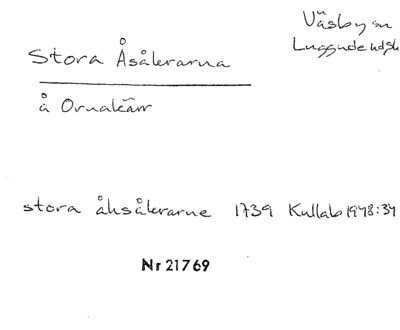 Väsby sn
Luggude hd
Stora Åsåkrarna
å Ornakärr
stora åhsåkrarne 1739 Kullab 1948:34
Nr 21769